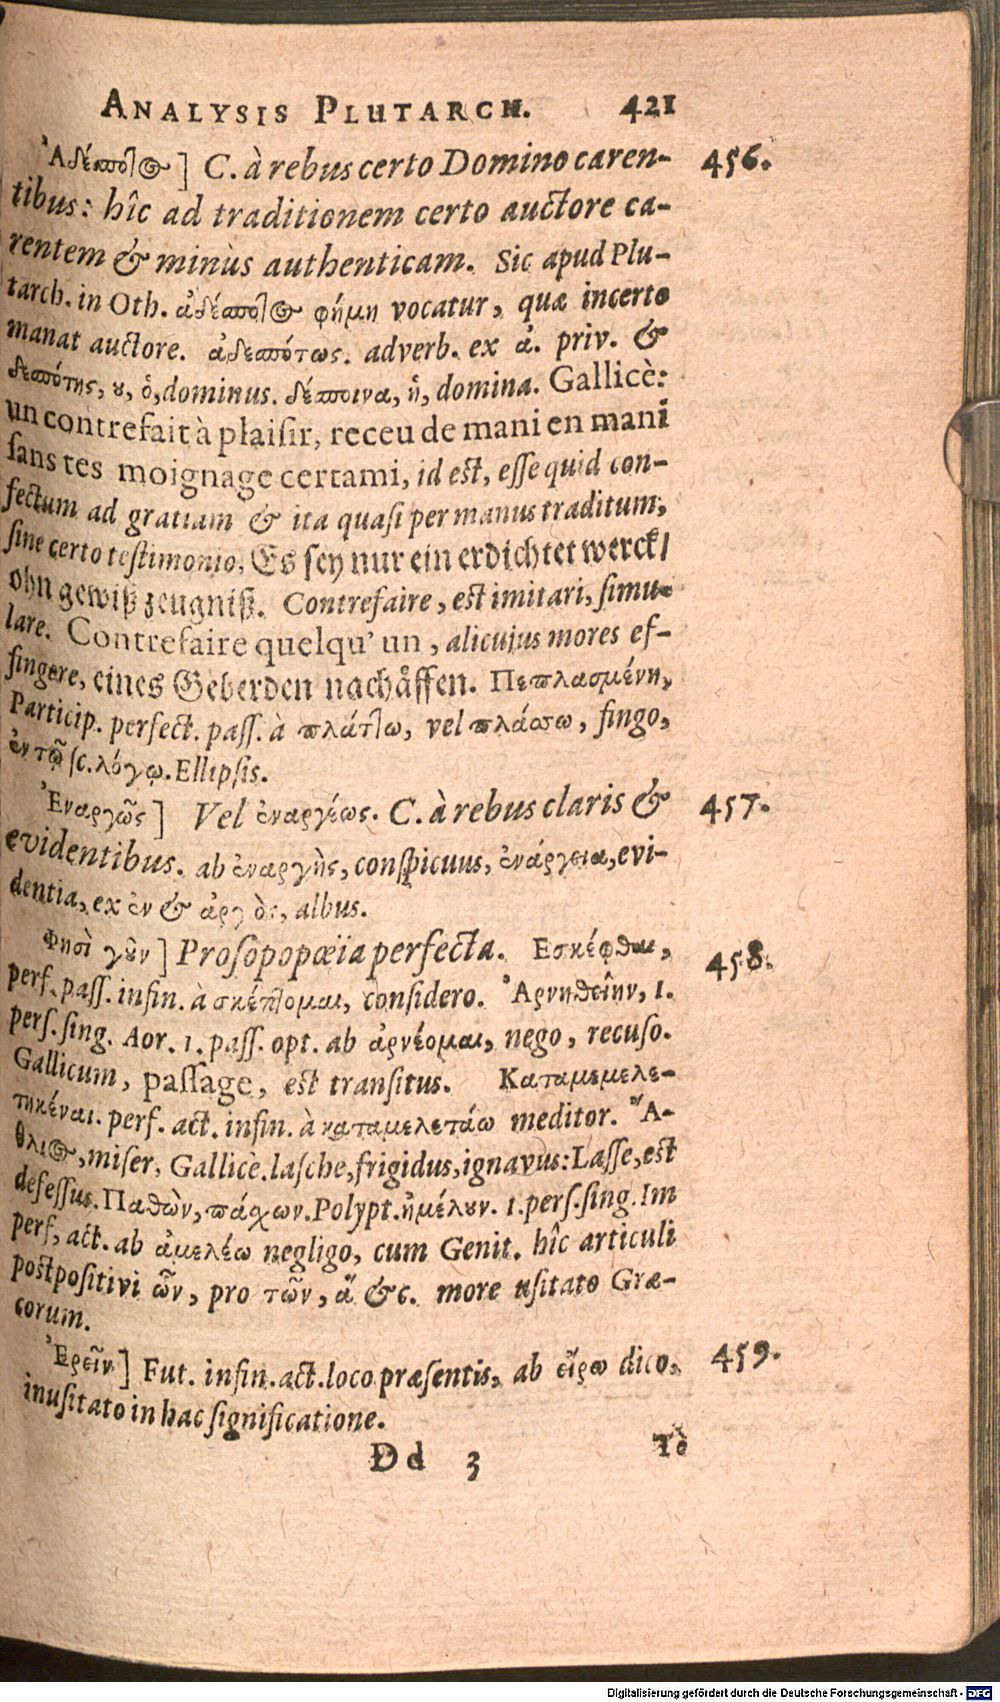 ANALYSIS PLUTARCH. 421
Ἀδέσποτος] C. à rebus certo Domino caren- 456.
tibus: hîc ad traditionem certo auctore ca-
rentem & minùs authenticam. Sic apud Plu-
tarch. in Oth. ἀδέσποτος φήμη vocatur, quæ incerto
manat auctore. ἀδεσπότως. adverb. ex ἀ. priv. &
δεσπότης, ȣ, ὁ, dominus. δέσποινα, ἡ, domina. Gallicè:
un contrefait à plaisir, receu de mani en mani
sans tes moignage certami, id est, esse quid con-
fectum ad gratiam & ita quasi per manus traditum,
sine certo testimonio, Es sey nur ein erdichtet werck/
ohn gewiß zeugniß. Contrefaire, est imitari, simu-
lare. Contrefaire quelqu' un, alicujus mores ef-
fingere, eines Geberden nachåffen. Πεπλασμένη,
Particip. perfect. pass. à πλάττω, vel πλάσσω, fingo,
ἐν τῷ sc. λόγῳ. Ellipsis.
Ἐναργῶς] Vel ἐναργέως. C. à rebus claris & 457.
evidentibus. ab ἐναργὴς, conspicuus, ἐνάργεια, evi-
dentia, ex ἐν & ἀργὸς, albus.
Φησὶ γȣ̂ν] Prosopopœïa perfecta. Εσκέφθαι, 458.
perf. pass. infin. à σκέπτομαι, considero. Ἀρνηθείην, 1.
pers. sing. Aor. 1. pass. opt. ab ἀρνέομαι, nego, recuso.
Gallicum, passage, est transitus. Καταμεμελε-
τηκέναι. perf. act. infin. à καταμελετάω meditor. Ἄ-
θλιος, miser, Gallicè. lasche, frigidus, ignavus: Lasse, est
defessus. Παθὼν, πάχων. Polypt. ἠμέλȣν. 1. pers. sing. Im
perf, act. ab ἀμελέω negligo, cum Genit. hîc articuli
postpositivi ὧν, pro τῶν, ἃ &c. more usitato Græ-
corum.
Ἐρεῖν] Fut. infin. act. loco præsentis, ab εἴρω dico, 459.
inusitato in hac significatione.
Dd 3 Τὸ
Digitalisierung gefördert durch die Deutsche Forschungsgemeinschaft - DFG